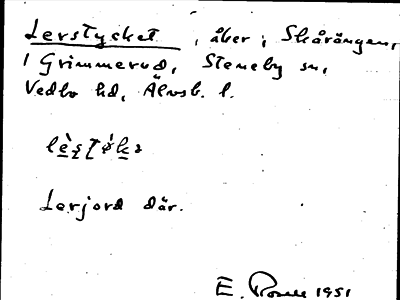 Lerstycket, åker i Skårängen,
1 Grimmerud, Steneby sn,
Vedbo hd, Älvsb. l.
Lerjord där.
E. 1951